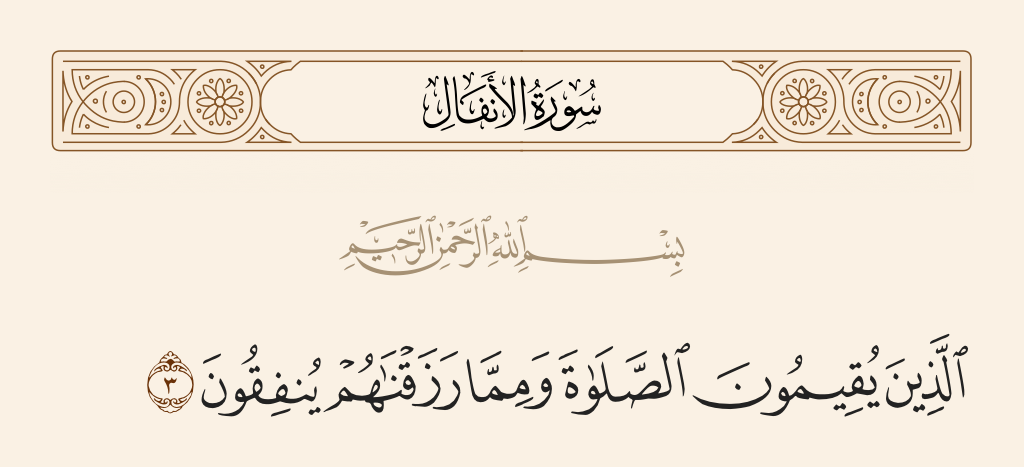 سُورَةُ الأَنفَالِ
بِسْمِ ٱللَّهِ ٱلرَّحْمَٰنِ ٱلرَّحِيمِ
ٱلَّذِينَ يُقِيمُونَ ٱلصَّلَوٰةَ وَمِمَّا رَزَقْنَٰهُمْ يُنفِقُونَ ٣